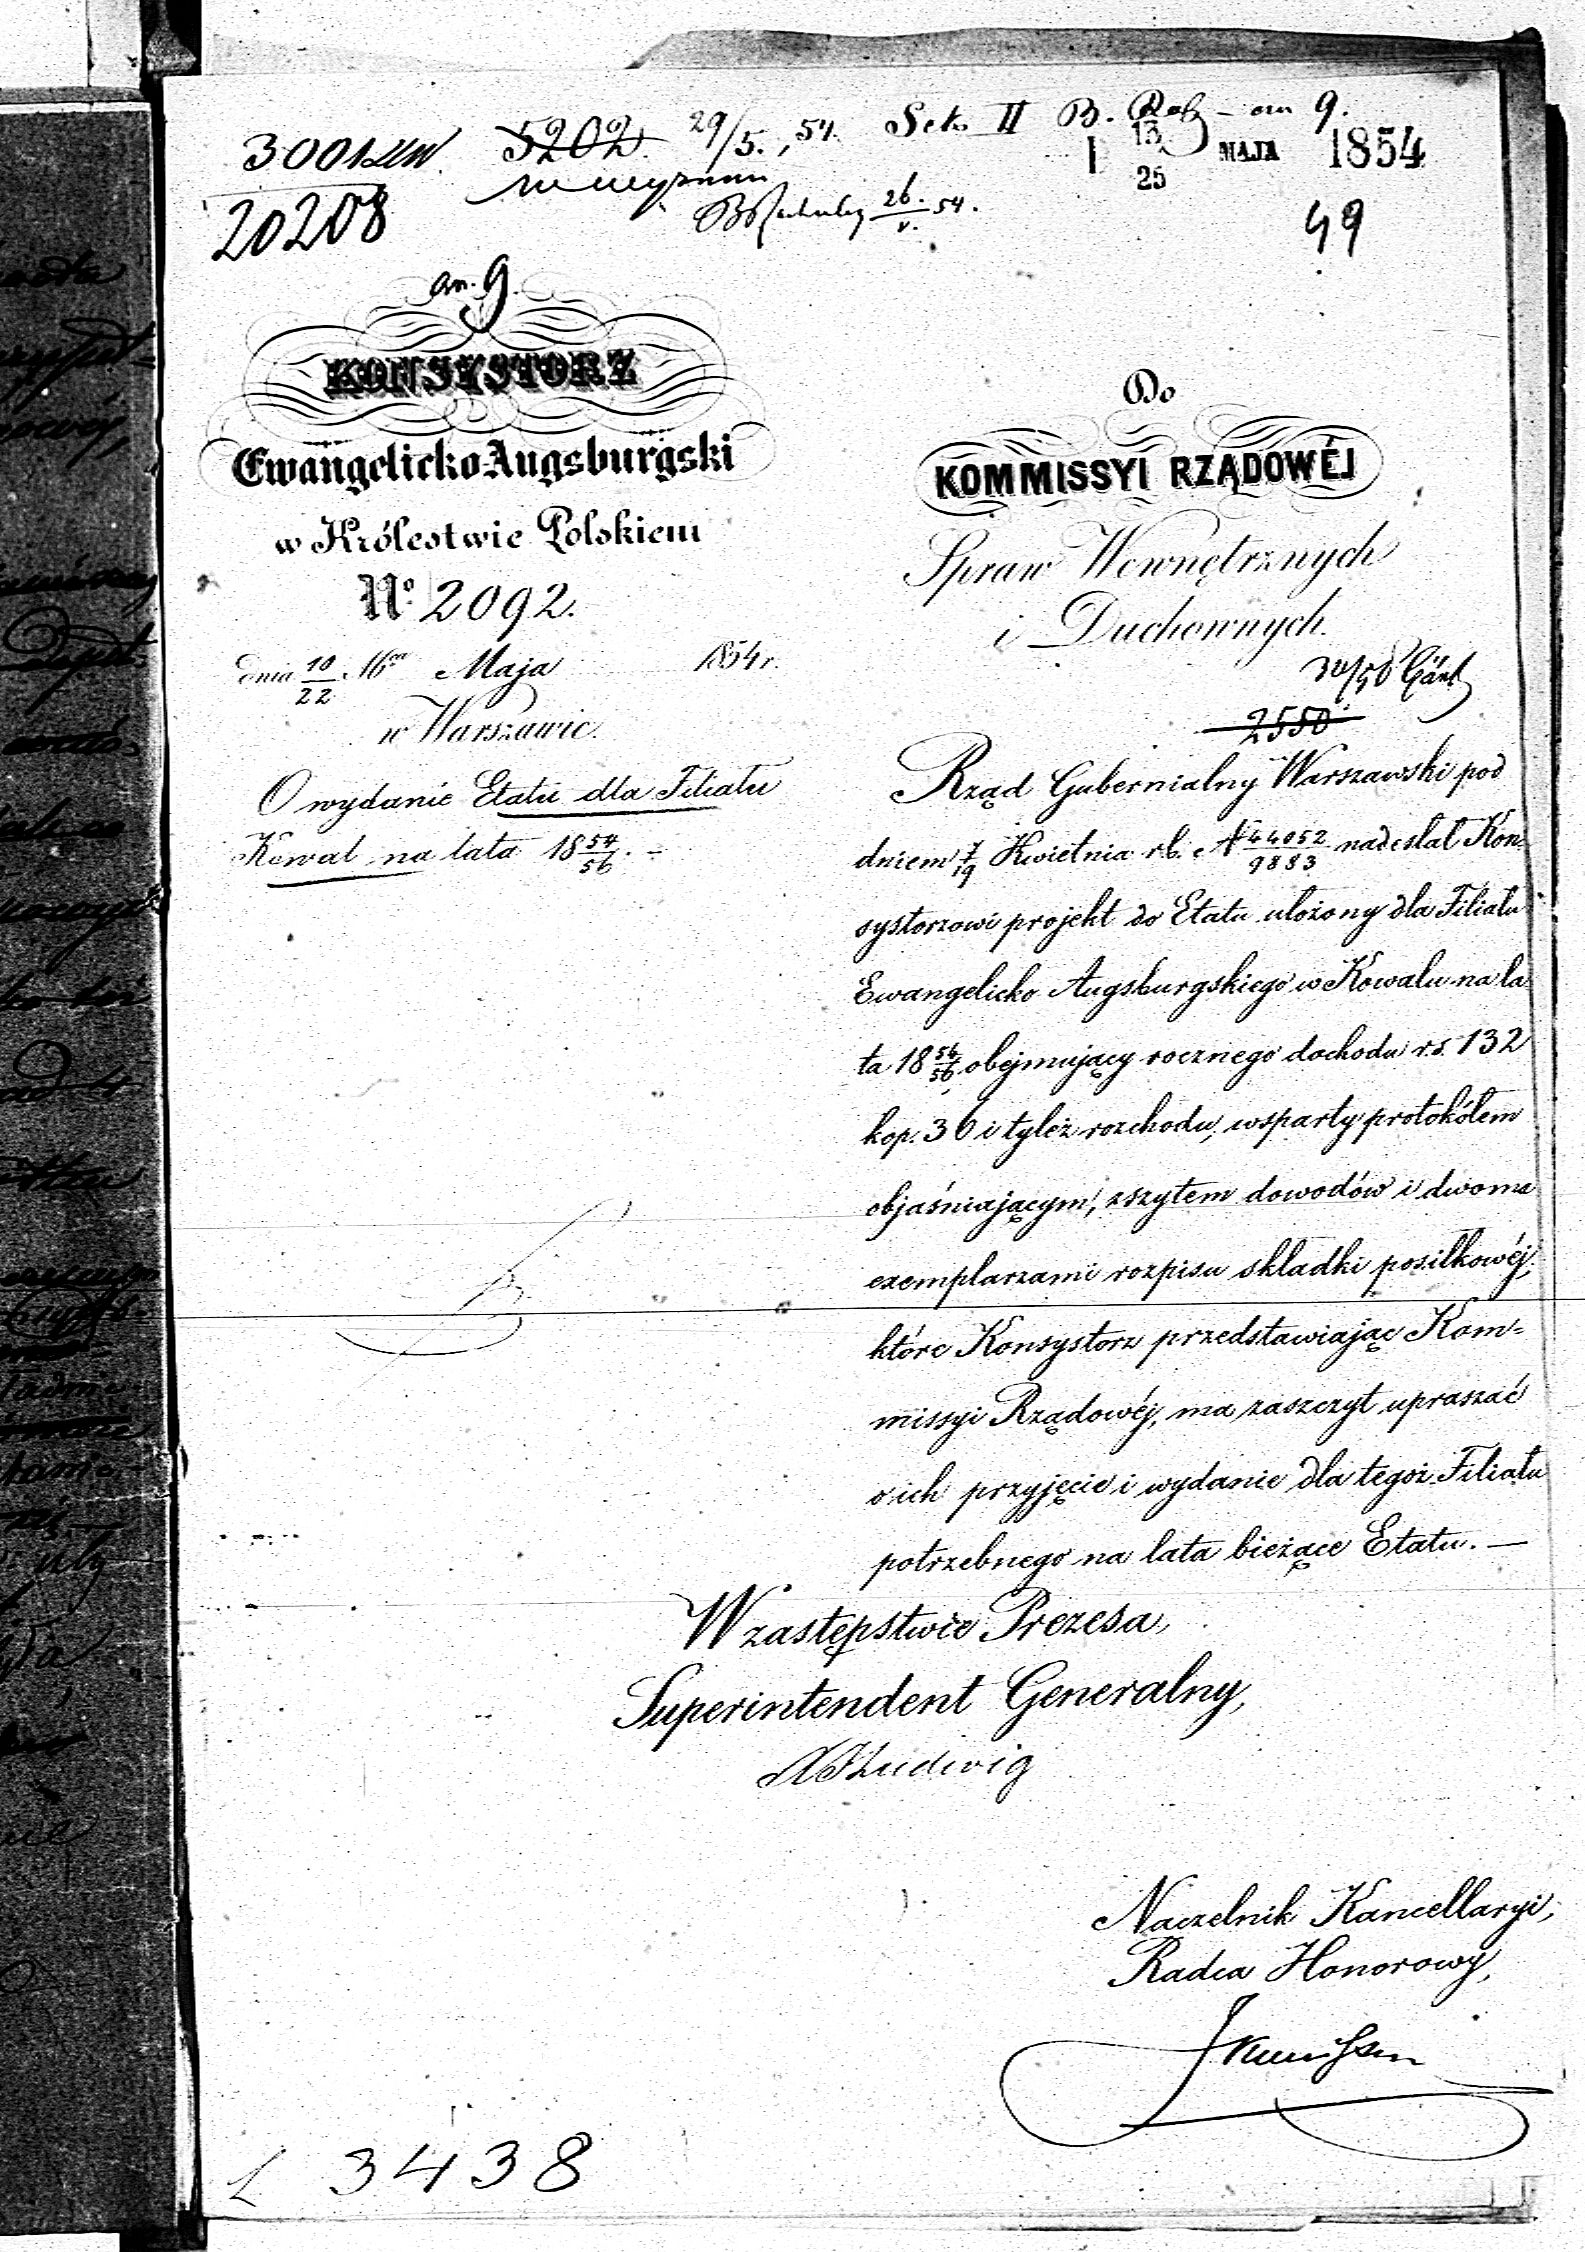 5202. 29/5., 54. Sek. II B. — an 9.
20208
13/25 MAJA 1854
26/v. 54.
49
an. 9.
KONSYSTORZ
Ewangelicko-Augsburgski
w Królestwie Polskiem
No 2092.
dnia 10/22 Maja 1854 r.
w Warszawie.
O wydanie Etatu dla Filiału
Kowal na lata 18 54/56. —
Do
KOMMISSYI RZĄDOWÉJ
Spraw Wewnętrznych
i Duchownych.
2550
Rząd Gubernialny Warszawski pod
dniem 7/19 Kwietnia rb. N 44052/9883 nadesłał Kon-
systorzowi projekt do Etatu ułożony dla Filiału
Ewangelicko Augsburgskiego w Kowalu na la
ta 18 54/56, obejmujący rocznego dochodu r.s. 132
kop. 36 i tyleż rozchodu, wsparty protokółem
objaśniającym, zszytem dowodów i dwoma
exemplarzami rozpisu składki posiłkowéj,
które Konsystorz przedstawiając Kom=
missyi Rządowéj, ma zaszczyt upraszać
o ich przyjęcie i wydanie dla tegoż Filiału
potrzebnego na lata bieżące Etatu. —
W zastępstwie Prezesa,
Superintendent Generalny,
Ludwig
Naczelnik Kancellaryi,
Radca Honorowy,
L 3438